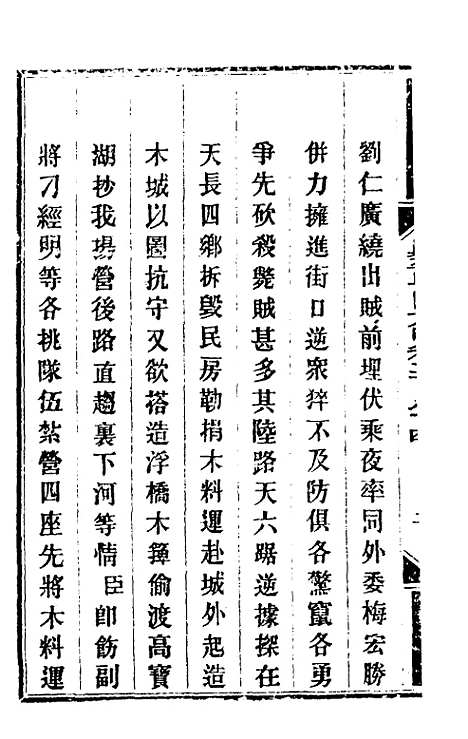 劉仁廣繞出賊前埋伏乘夜率同外委梅宏勝
併力擁進街口逆衆猝不及防俱各驚竄各勇
爭先砍殺斃賊甚多其陸路天六踞逆據探在
天長四鄉拆毀民房勒捐木料運赴城外起造
木城以圖抗守又欲搭造浮橋木簰偷渡高寶
湖抄我場營後路直趨裏下河等情臣卽飭副
將刁經明等各挑隊伍紮營四座先將木料運